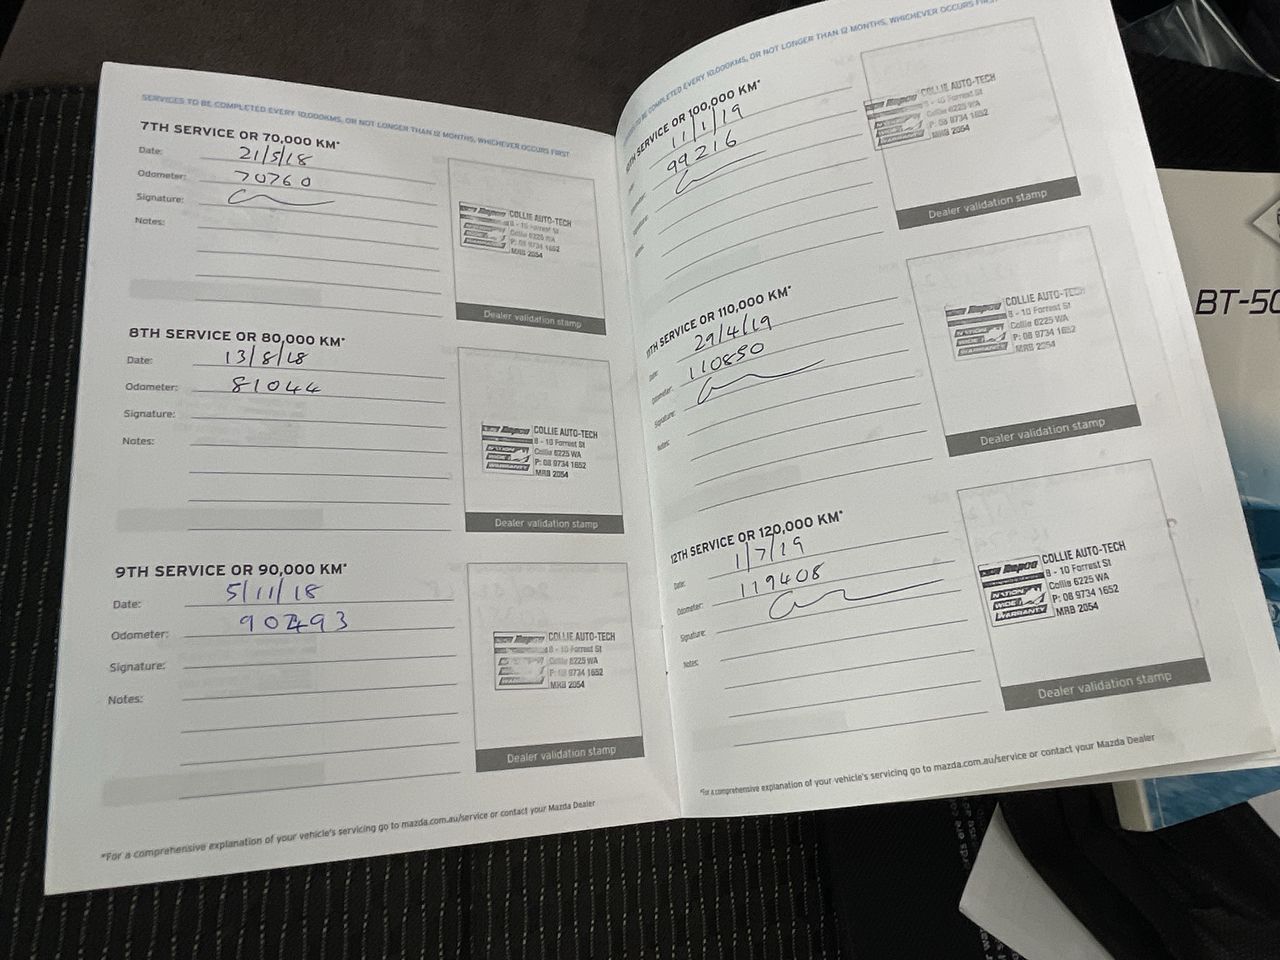 SERVICES TO BE COMPLETED EVERY 10,000KMS, OR NOT LONGER THAN 12 MONTHS, WHICHEVER OCCURS FIRST
7TH SERVICE OR 70,000 KM*
Date: 21/5/18
Odometer: 70760
Signature:
Notes:
Repco
COLLIE AUTO-TECH
8 - 10 Forrest St
Collie 6225 WA
P: 08 9734 1652
MRB 2054
Dealer validation stamp
8TH SERVICE OR 80,000 KM*
Date: 13/8/18
Odometer: 81044
Signature:
Notes:
Repco
NATION
WIDE
WARRANTY
COLLIE AUTO-TECH
8 - 10 Forrest St
Collie 6225 WA
P: 08 9734 1652
MRB 2054
Dealer validation stamp
9TH SERVICE OR 90,000 KM*
Date: 5/11/18
Odometer: 90293
Signature:
Notes:
Repco
COLLIE AUTO-TECH
8 - 10 Forrest St
Collie 6225 WA
P: 08 9734 1652
MRB 2054
Dealer validation stamp
*For a comprehensive explanation of your vehicle's servicing go to mazda.com.au/service or contact your Mazda Dealer
TO BE COMPLETED EVERY 10,000KMS, OR NOT LONGER THAN 12 MONTHS, WHICHEVER OCCURS FIRST
10TH SERVICE OR 100,000 KM*
11/1/19
99216
Repco
COLLIE AUTO-TECH
8 - 10 Forrest St
Collie 6225 WA
P: 08 9734 1652
MRB 2054
Dealer validation stamp
11TH SERVICE OR 110,000 KM*
Date: 29/4/19
Odometer: 110850
Signature:
Notes:
Repco
NATION
WIDE
WARRANTY
COLLIE AUTO-TECH
8 - 10 Forrest St
Collie 6225 WA
P: 08 9734 1652
MRB 2054
Dealer validation stamp
12TH SERVICE OR 120,000 KM*
Date: 1/7/19
Odometer: 119408
Signature:
Notes:
Repco
NATION
WIDE
WARRANTY
COLLIE AUTO-TECH
8 - 10 Forrest St
Collie 6225 WA
P: 08 9734 1652
MRB 2054
Dealer validation stamp
*For a comprehensive explanation of your vehicle's servicing go to mazda.com.au/service or contact your Mazda Dealer
BT-50